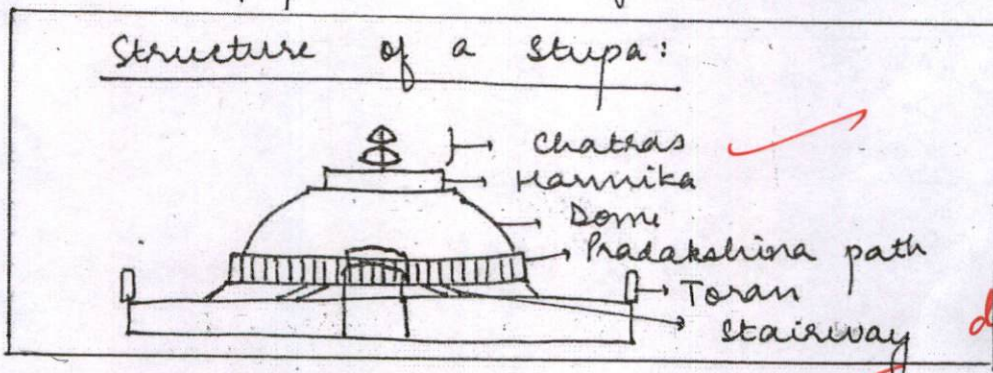 Structure of a Stupa:
Chatras
Harmika
Dome
Pradakshina path
Toran
Stairway